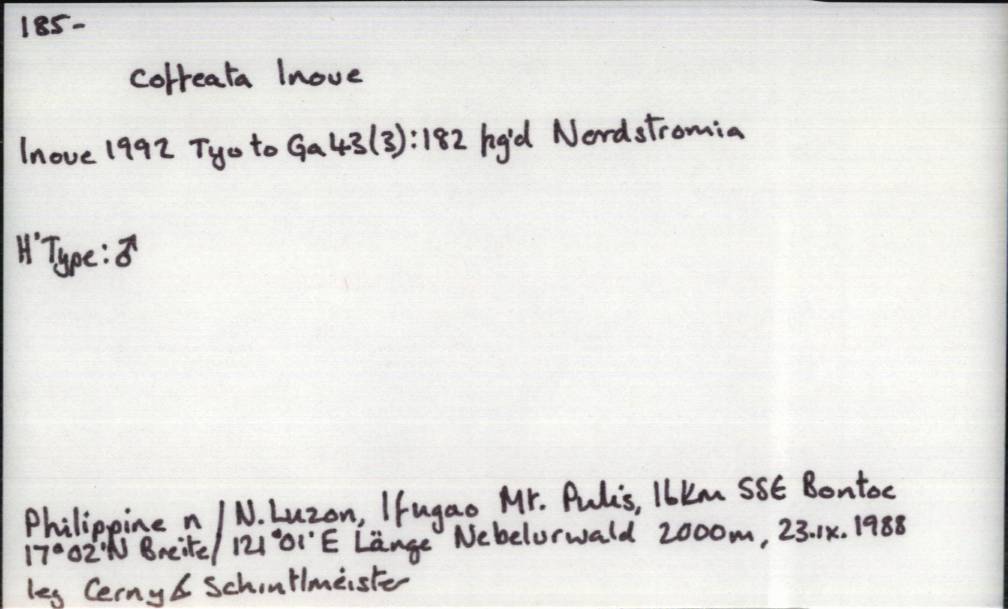 185-
coffeata Inoue
Inoue 1992 Tyo to Ga 43(3):182 fig'd Nordstromia
H'Type: ♂
Philippinen / N. Luzon, Ifugao Mt. Pulis, 16km SSE Bontoc
17°02'N Breite / 121°01'E Länge Nebelurwald 2000m, 23.ix.1988
leg Cerny & Schintlmeister